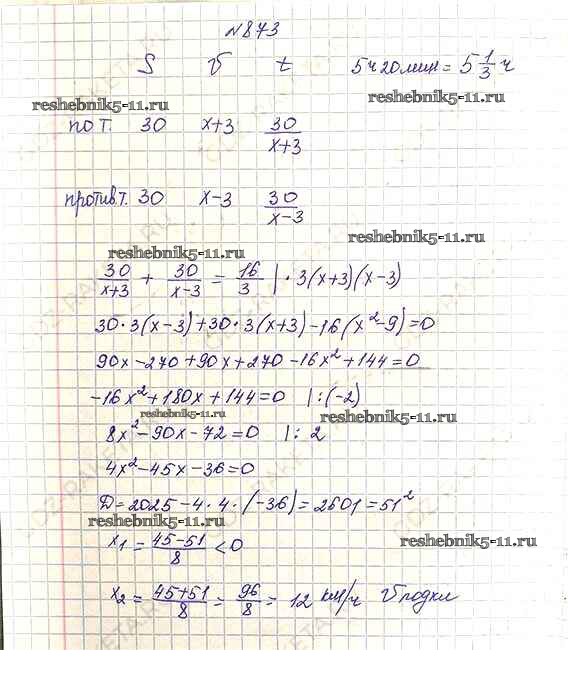 N873
S V t 5ч20мин = 5 1/3 ч
reshebnik5-11.ru reshebnik5-11.ru
по т. 30 x+3 30/(x+3)
против т. 30 x-3 30/(x-3)
reshebnik5-11.ru
reshebnik5-11.ru
30/(x+3) + 30/(x-3) = 16/3 | · 3(x+3)(x-3)
30·3(x-3)+30·3(x+3)-16(x²-9)=0
90x-270+90x+270-16x²+144=0
-16x²+180x+144=0 |:(-2)
reshebnik5-11.ru reshebnik5-11.ru
8x²-90x-72=0 |: 2
4x²-45x-36=0
D=2025-4·4·(-36)=2601=51²
reshebnik5-11.ru
x₁=(45-51)/8<0
reshebnik5-11.ru
x₂=(45+51)/8=96/8=12 км/ч V лодки